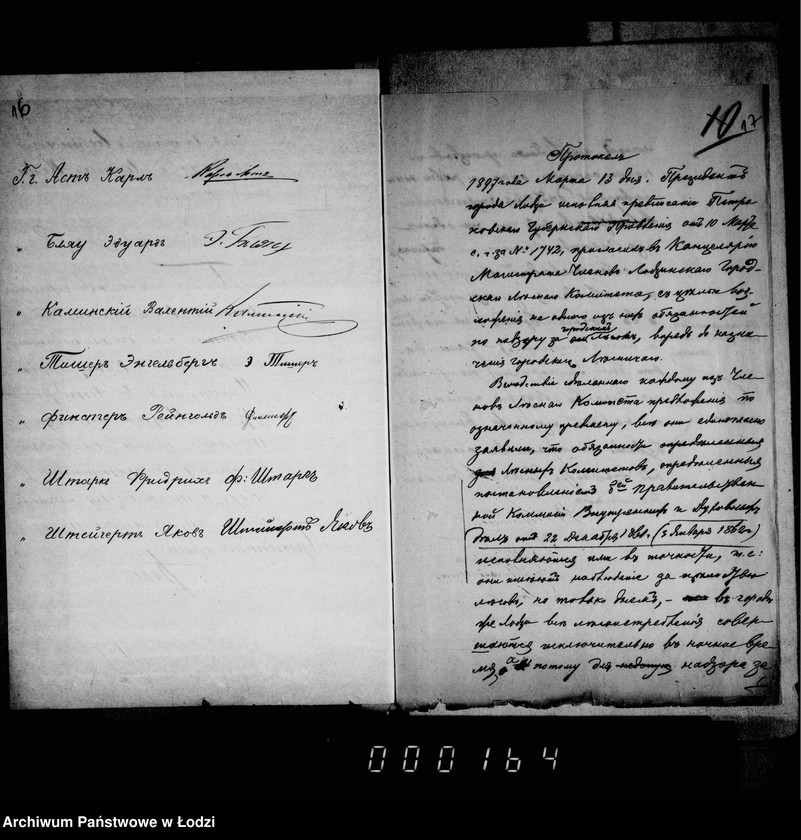 16
Г.г. Астъ Карлъ
" Бляу Эдуардъ Э. Бляу
" Каминскій Валентій Каминскій
" Тишеръ Энгельбергъ Э Тишеръ
" Финстеръ Рейнгольдъ Финстеръ
" Штаркъ Фридрихъ Ф: Штаркъ
" Штейгертъ Яковъ Штейгертъ Яковъ
10 17
Протоколъ
1897 года Марта 13 дня. Президентъ
города Лодзи исполняя предписаніе Петро
ковскаго Губернскаго Правленія отъ 10 Марта
с. г. за № 1742, пригласилъ въ Канцелярію
Магистрата Членовъ Лодзинскаго Город-
скаго Лѣснаго Комитета, съ цѣлью воз-
ложенія на одного изъ нихъ обязанностей
по надзору за городскимъ лѣсомъ, впредь до назна
ченія городскаго Лѣсничаго.
Вслѣдствіе сдѣланнаго каждому изъ Чле
новъ Лѣснаго Комитета предложенія по
означенному предмету, всѣ они единогласно
заявили, что обязанности опредѣленныя
Лѣсныхъ Комитетовъ, опредѣленныя
постановленіемъ бей Правительствен
ной Коммисіи Внутреннихъ и Духовныхъ
дѣлъ отъ 22 Декабря 1861 (3 Января 1862 г)
исполняются ими въ точности, т. е:
они имѣютъ наблюденіе за цѣлостью
лѣсовъ, но только днемъ, - въ городѣ
же Лодзи всѣ лѣсоистребленія совер-
шаются исключительно въ ночное вре
мя, а потому для надзора за